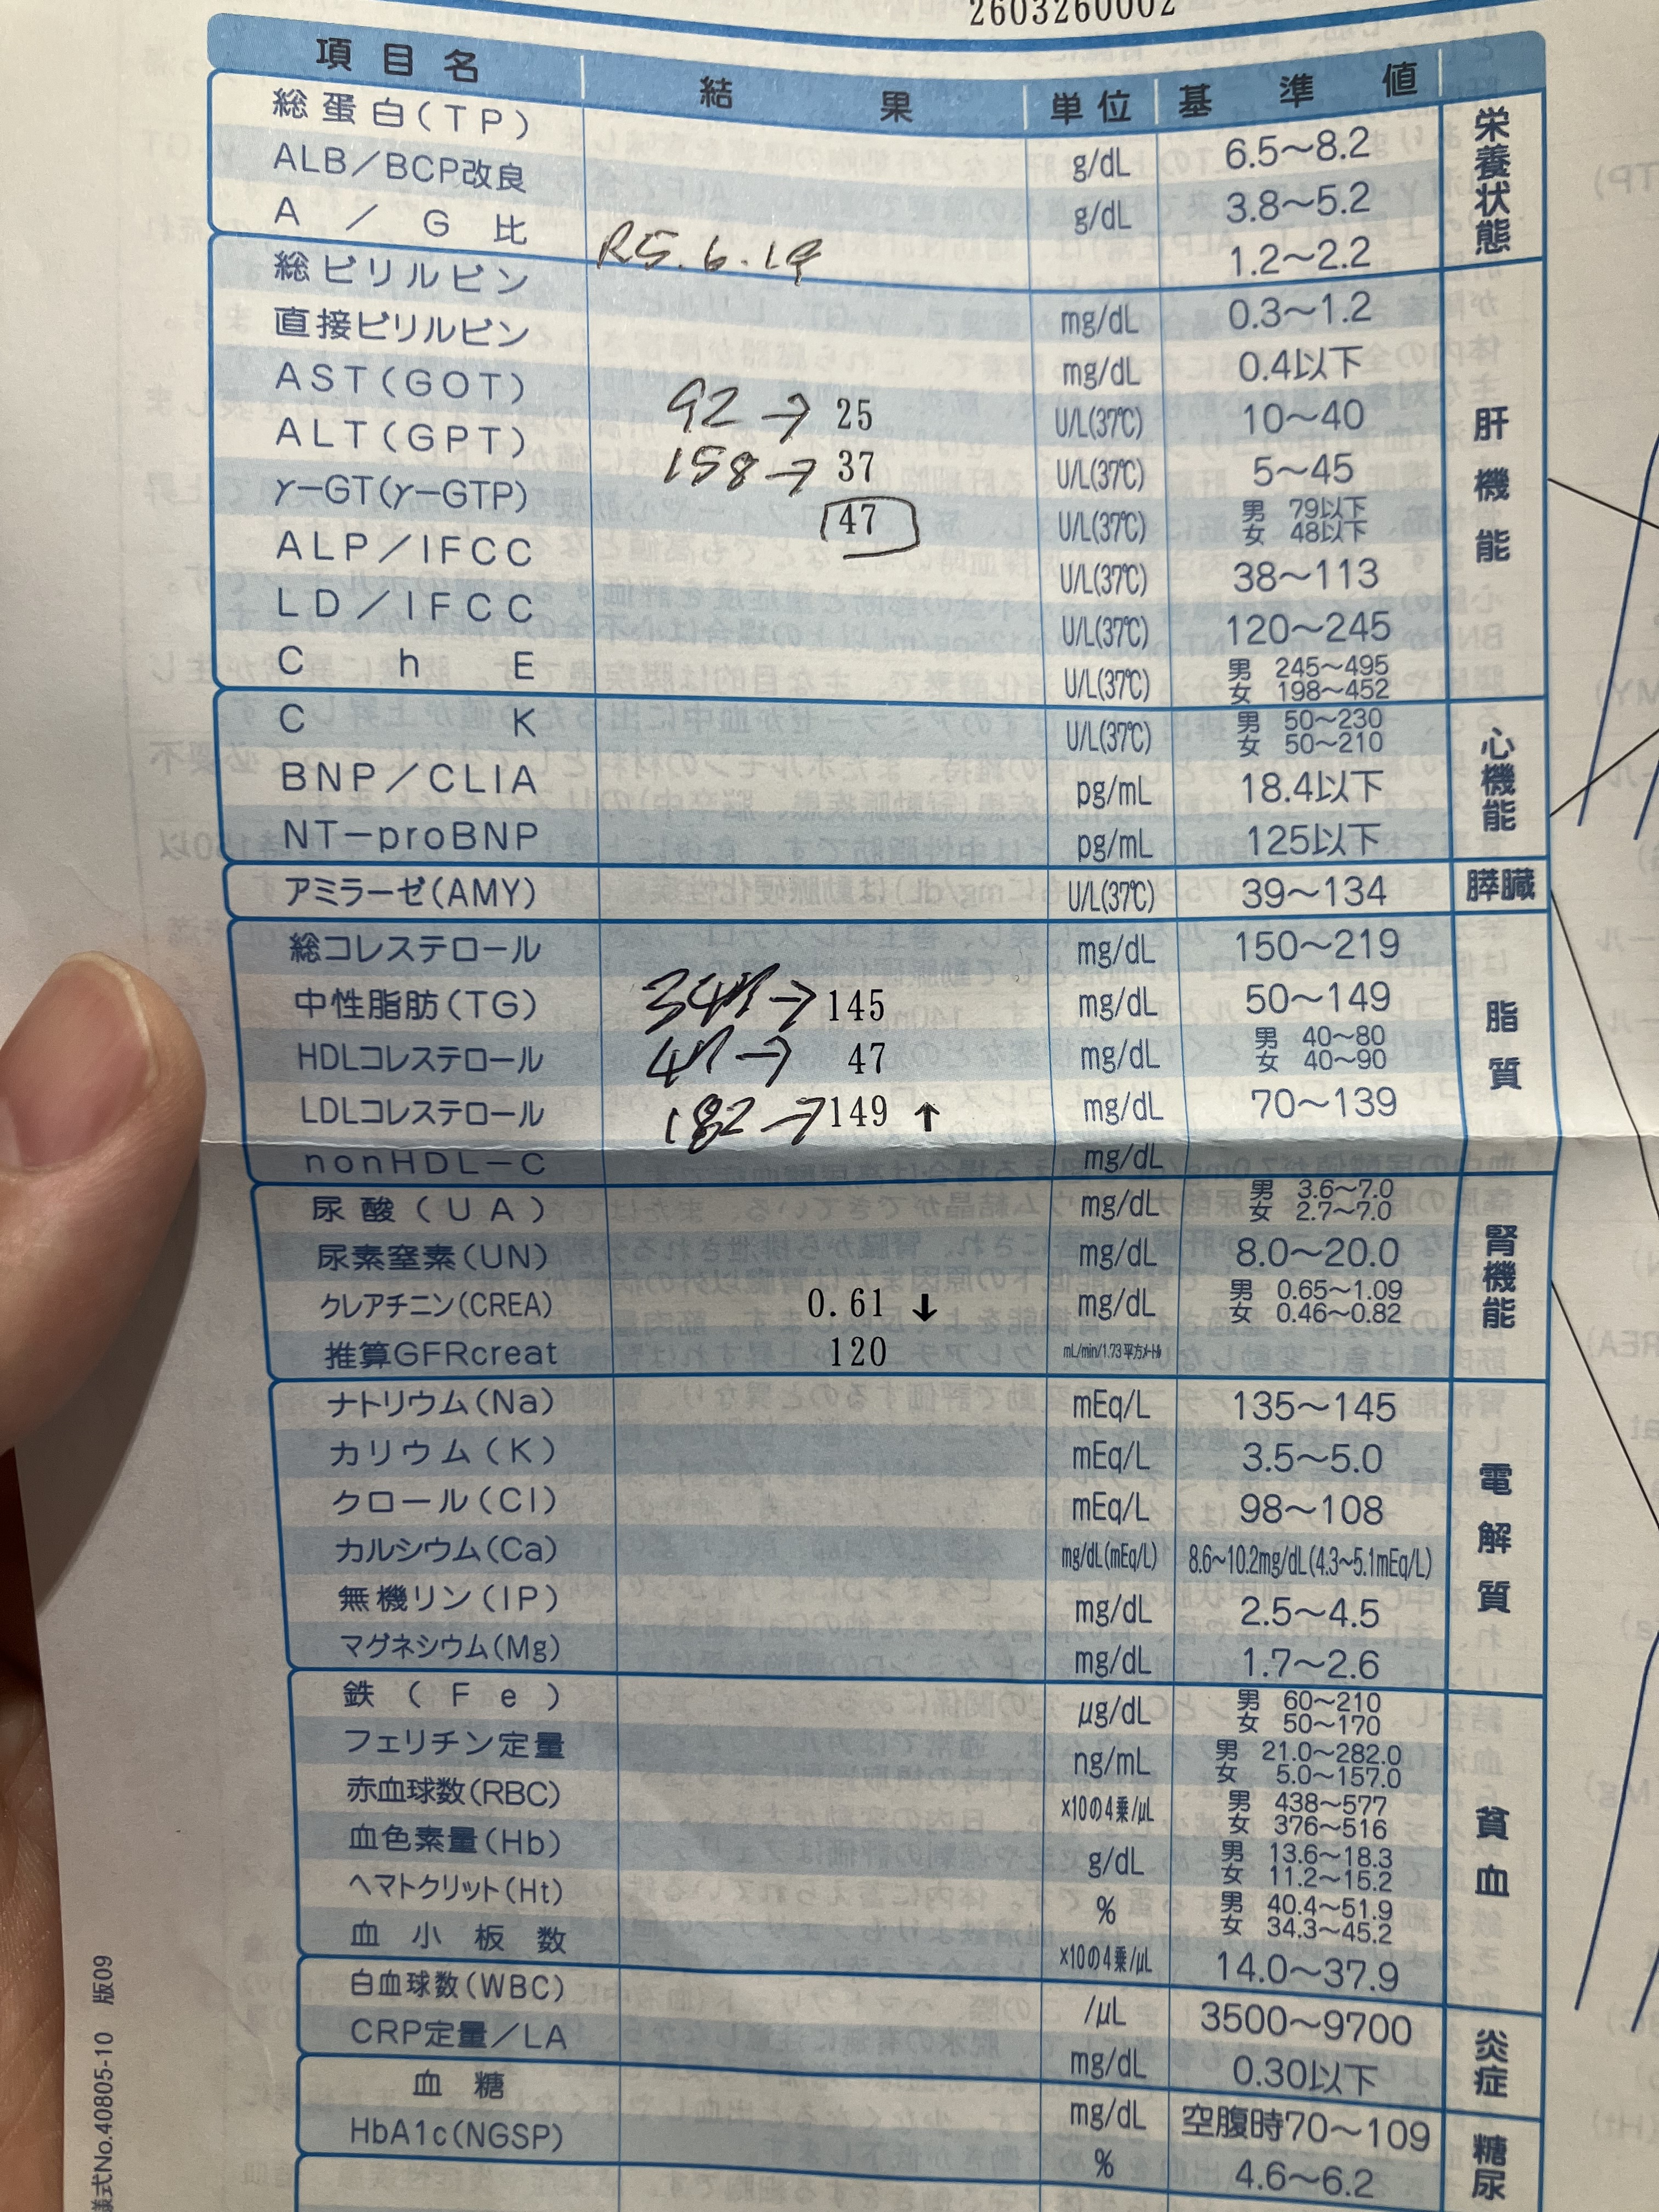 2603260002
項目名 結果 単位 基準値
総蛋白(TP) g/dL 6.5〜8.2 栄養状態
ALB/BCP改良 g/dL 3.8〜5.2
A/G比 1.2〜2.2
R5.6.19
総ビリルビン mg/dL 0.3〜1.2 肝機能
直接ビリルビン mg/dL 0.4以下
AST(GOT) 92→25 U/L(37℃) 10〜40
ALT(GPT) 158→37 U/L(37℃) 5〜45
γ-GT(γ-GTP) 47 U/L(37℃) 男 79以下 女 48以下
ALP/IFCC U/L(37℃) 38〜113
LD/IFCC U/L(37℃) 120〜245
ChE U/L(37℃) 男 245〜495 女 198〜452
CK U/L(37℃) 男 50〜230 女 50〜210 心機能
BNP/CLIA pg/mL 18.4以下
NT-proBNP pg/mL 125以下
アミラーゼ(AMY) U/L(37℃) 39〜134 膵臓
総コレステロール mg/dL 150〜219 脂質
中性脂肪(TG) →145 mg/dL 50〜149
HDLコレステロール →47 mg/dL 男 40〜80 女 40〜90
LDLコレステロール 182→149 ↑ mg/dL 70〜139
nonHDL-C mg/dL
尿酸(UA) mg/dL 男 3.6〜7.0 女 2.7〜7.0 腎機能
尿素窒素(UN) mg/dL 8.0〜20.0
クレアチニン(CREA) 0.61 ↓ mg/dL 男 0.65〜1.09 女 0.46〜0.82
推算GFRcreat 120 mL/min/1.73平方メートル
ナトリウム(Na) mEq/L 135〜145 電解質
カリウム(K) mEq/L 3.5〜5.0
クロール(Cl) mEq/L 98〜108
カルシウム(Ca) mg/dL(mEq/L) 8.6〜10.2mg/dL(4.3〜5.1mEq/L)
無機リン(IP) mg/dL 2.5〜4.5
マグネシウム(Mg) mg/dL 1.7〜2.6
鉄(Fe) μg/dL 男 60〜210 女 50〜170 貧血
フェリチン定量 ng/mL 男 21.0〜282.0 女 5.0〜157.0
赤血球数(RBC) ×10の4乗/μL 男 438〜577 女 376〜516
血色素量(Hb) g/dL 男 13.6〜18.3 女 11.2〜15.2
ヘマトクリット(Ht) % 男 40.4〜51.9 女 34.3〜45.2
血小板数 ×10の4乗/μL 14.0〜37.9
白血球数(WBC) /μL 3500〜9700 炎症
CRP定量/LA mg/dL 0.30以下
血糖 mg/dL 空腹時70〜109 糖尿
HbA1c(NGSP) % 4.6〜6.2
様式No.40805-10 版09